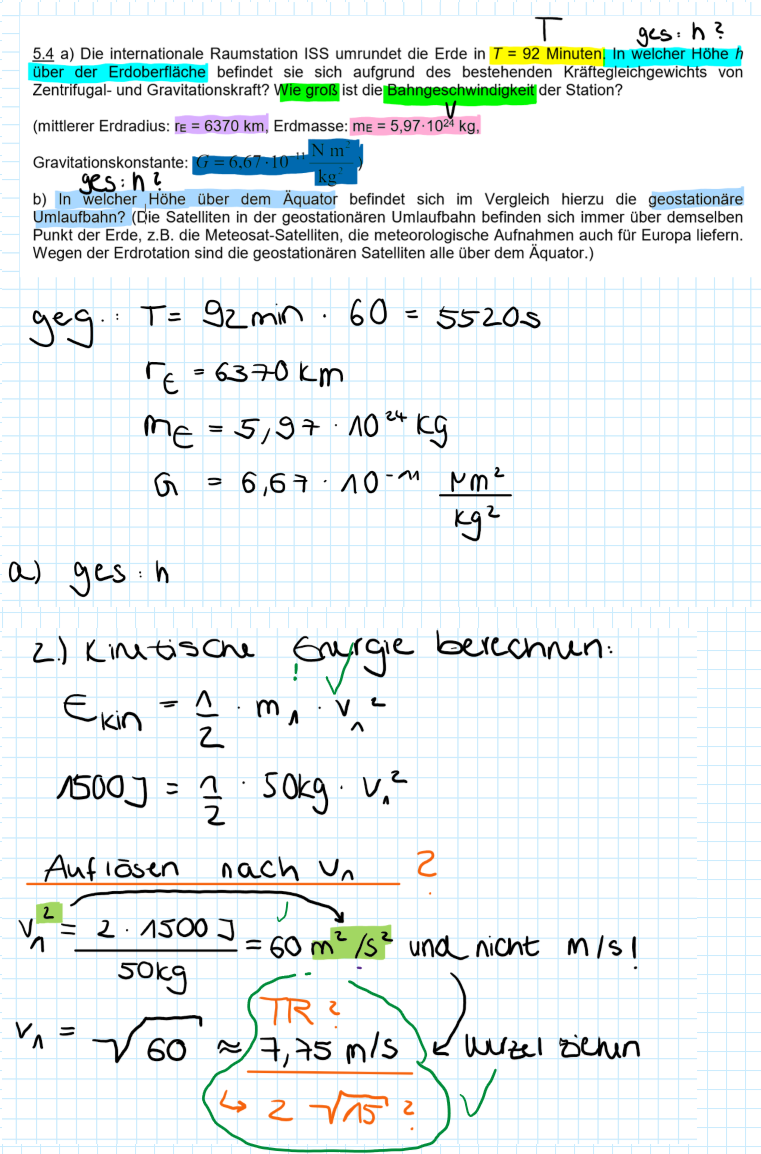 T
ges: h?
5.4 a) Die internationale Raumstation ISS umrundet die Erde in T = 92 Minuten. In welcher Höhe h
über der Erdoberfläche befindet sie sich aufgrund des bestehenden Kräftegleichgewichts von
Zentrifugal- und Gravitationskraft? Wie groß ist die Bahngeschwindigkeit der Station?
V
(mittlerer Erdradius: rE = 6370 km, Erdmasse: mE = 5,97·10²⁴ kg,
Gravitationskonstante: G = 6,67·10⁻¹¹ N m²/kg²)
ges: h?
b) In welcher Höhe über dem Äquator befindet sich im Vergleich hierzu die geostationäre
Umlaufbahn? (Die Satelliten in der geostationären Umlaufbahn befinden sich immer über demselben
Punkt der Erde, z.B. die Meteosat-Satelliten, die meteorologische Aufnahmen auch für Europa liefern.
Wegen der Erdrotation sind die geostationären Satelliten alle über dem Äquator.)
geg.: T = 92min · 60 = 5520s
rE = 6370 km
mE = 5,97 · 10²⁴ kg
G = 6,67 · 10⁻¹¹ Nm²/kg²
a) ges: h
2.) Kinetische Energie berechnen:
! ✓
Ekin = 1/2 · m₁ · v₁²
1500J = 1/2 · 50kg · v₁²
Auflösen nach v₁ ?
v₁² = 2 · 1500 J / 50kg = 60 m²/s² und nicht m/s!
TR?
v₁ = √60 ≈ 7,75 m/s ← Wurzel ziehen
↳ 2 √15 ? ✓